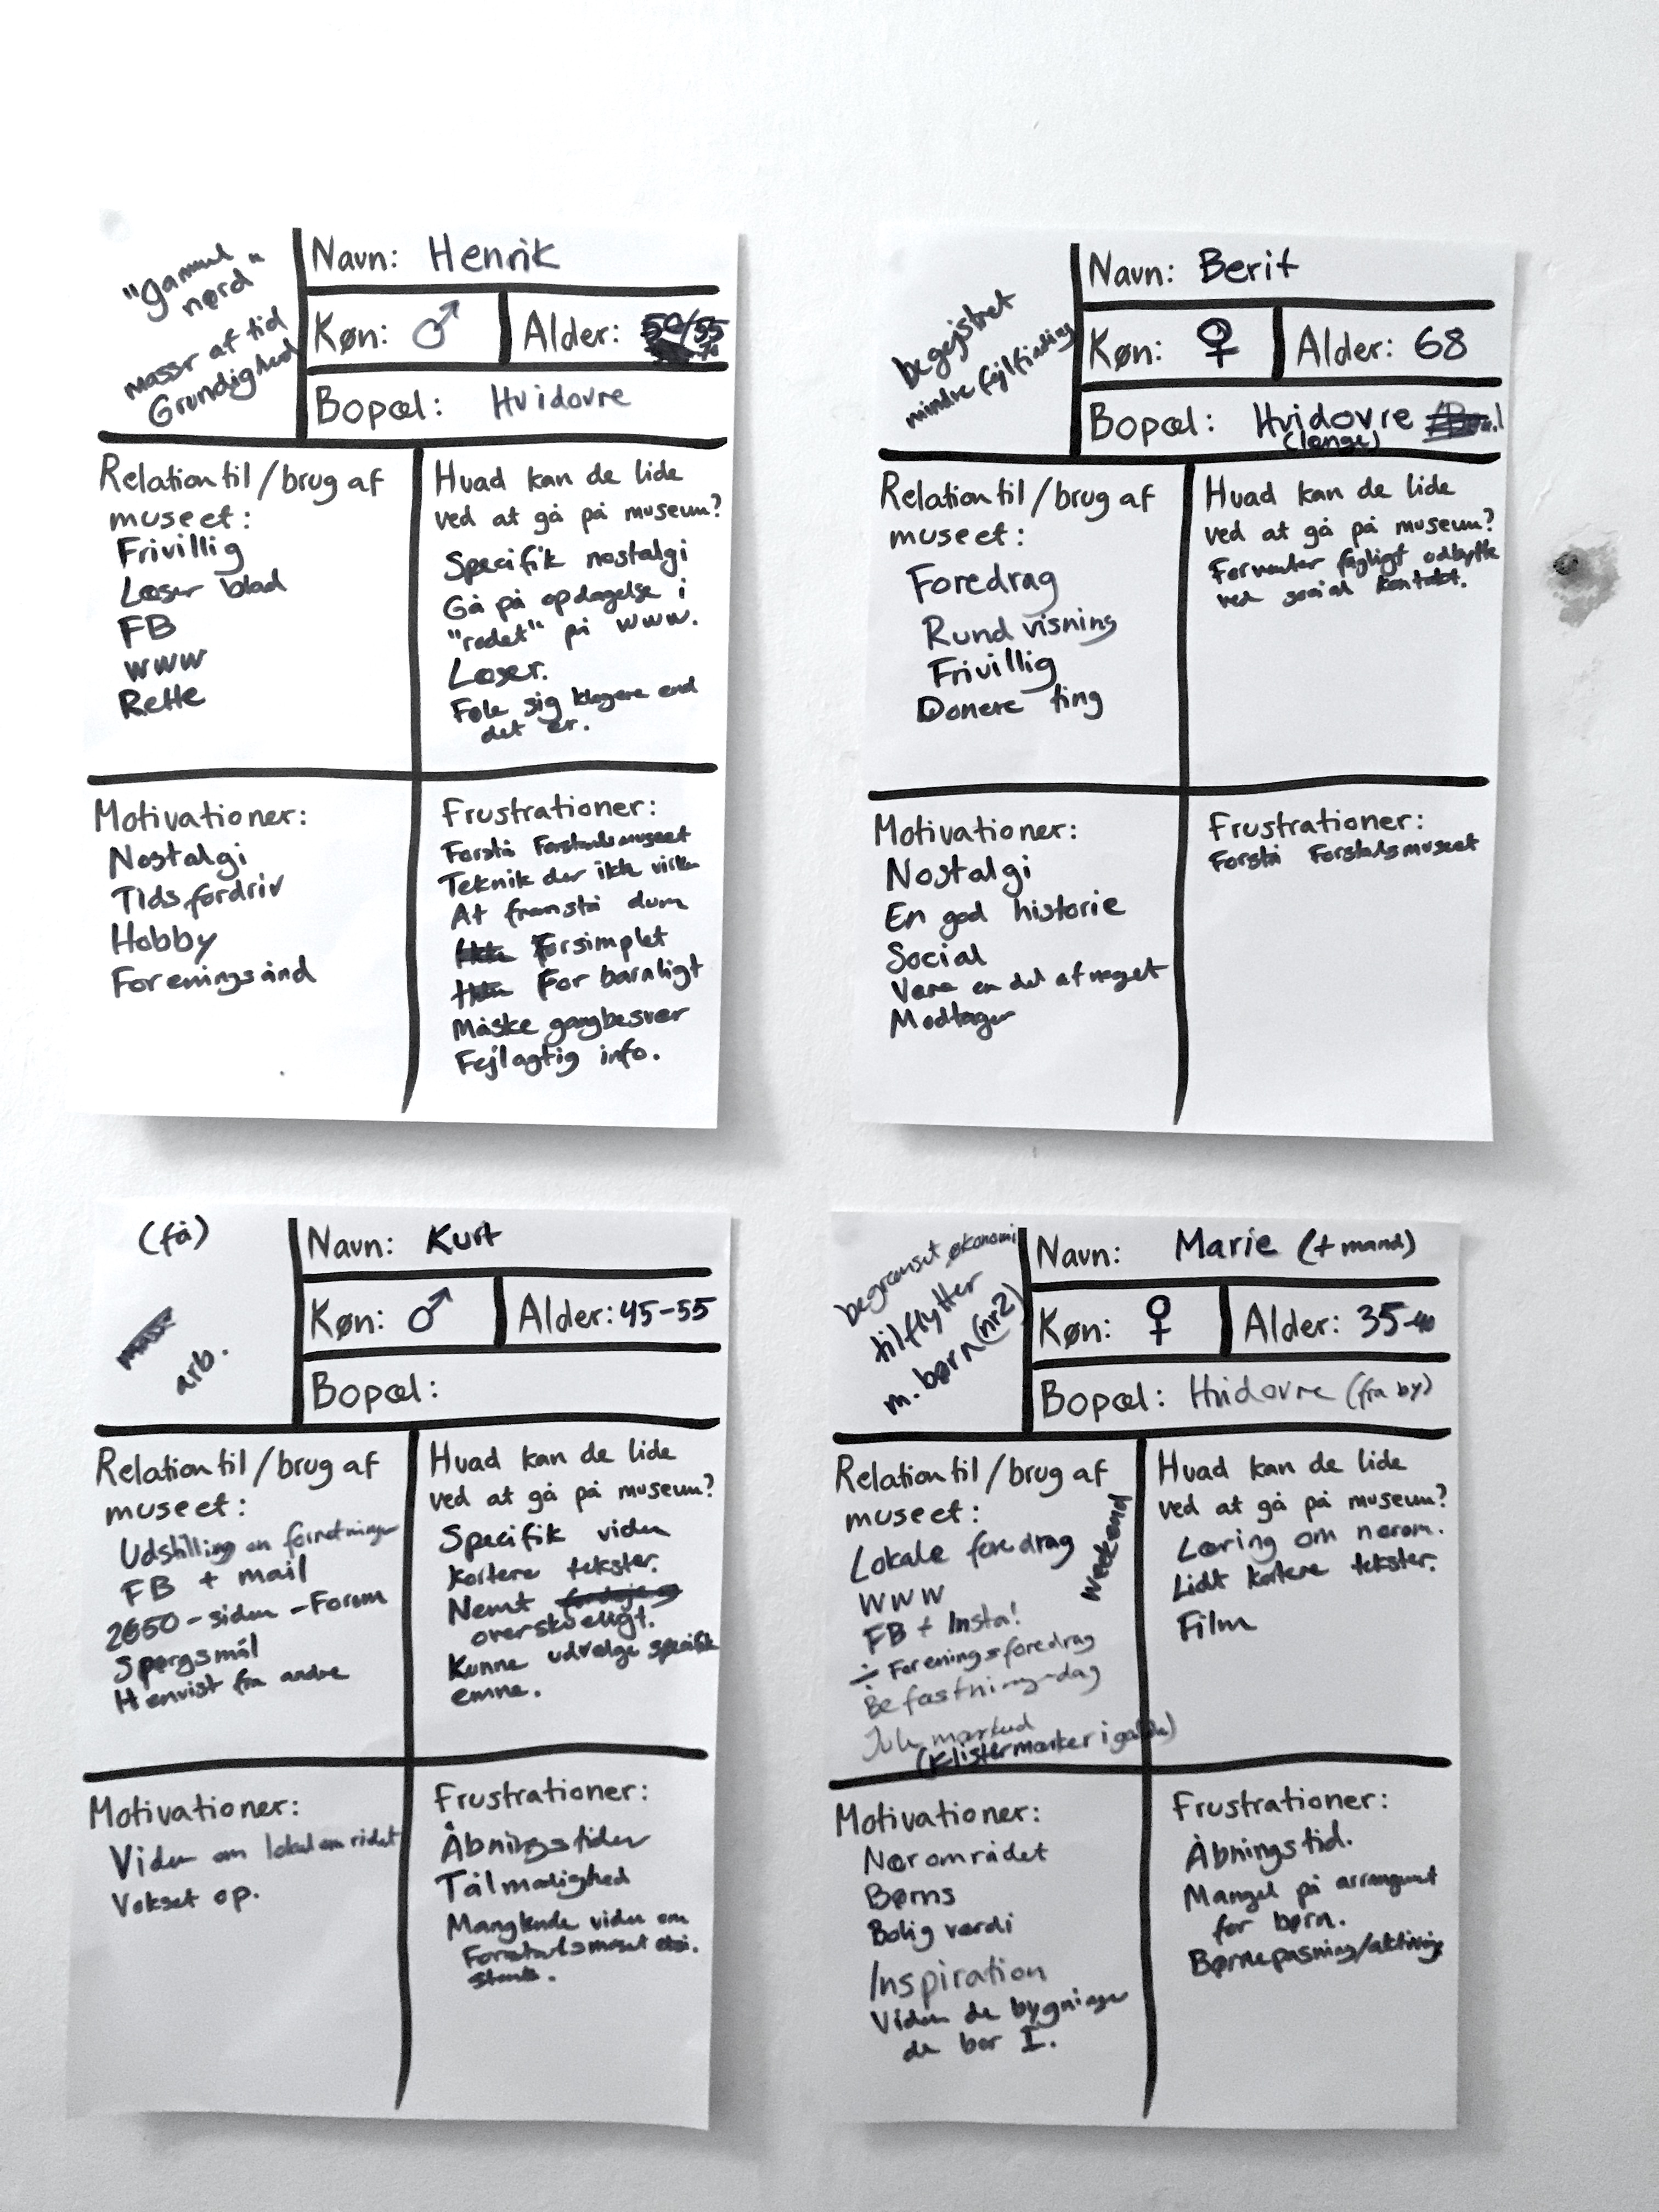 "gammel
nørd"
masser af tid
Grundighed
Navn: Henrik
Køn: ♂ Alder: 50/55
Bopæl: Hvidovre
Relation til/brug af
museet:
Frivillig
Læser blad
FB
www
Rette
Hvad kan de lide
ved at gå på museum?
Specifik nostalgi
Gå på opdagelse i
"rodet" på www.
Læser.
Føle sig klogere end
det er.
Motivationer:
Nostalgi
Tidsfordriv
Hobby
Foreningsånd
Frustrationer:
Forstå Forstadsmuseet
Teknik der ikke virker
At fremstå dum
Forsimplet
For barnligt
Måske gangbesvær
Fejlagtig info.
begejstret
mindre fejlfinding
Navn: Berit
Køn: ♀ Alder: 68
Bopæl: Hvidovre
(længe)
Relation til/brug af
museet:
Foredrag
Rundvisning
Frivillig
Donere ting
Hvad kan de lide
ved at gå på museum?
Forventer fagligt udbytte
ved social kontakt.
Motivationer:
Nostalgi
En god historie
Social
Være en del af noget
Modtager
Frustrationer:
Forstå Forstadsmuseet
(få)
arb.
Navn: Kurt
Køn: ♂ Alder: 45-55
Bopæl:
Relation til/brug af
museet:
Udstilling om forretninger
FB + mail
2650-siden - Forum
Spørgsmål
Henvist fra andre
Hvad kan de lide
ved at gå på museum?
Specifik viden
Kortere tekster.
Nemt
overskueligt.
Kunne udvælge specifik
emne.
Motivationer:
Viden om lokalområdet
Vokset op.
Frustrationer:
Åbningstider
Tålmodighed
Manglende viden om
Forstadsmuseet
begrænset økonomi
tilflytter
m. børn (nr2)
Navn: Marie (+ mand)
Køn: ♀ Alder: 35-40
Bopæl: Hvidovre (fra by)
Relation til/brug af
museet:
Lokale foredrag
Weekend
WWW
FB + Insta!
÷ Foreningsforedrag
Befæstnings-dag
Julemarked
(Klistermærker i
Hvad kan de lide
ved at gå på museum?
Læring om nærom.
Lidt kortere tekster.
Film
Motivationer:
Nærområdet
Børns
Bolig værdi
Inspiration
Viden de bygninger
de bor I.
Frustrationer:
Åbningstid.
Mangel på arrangement
for børn.
Børnepasning/aktivitet